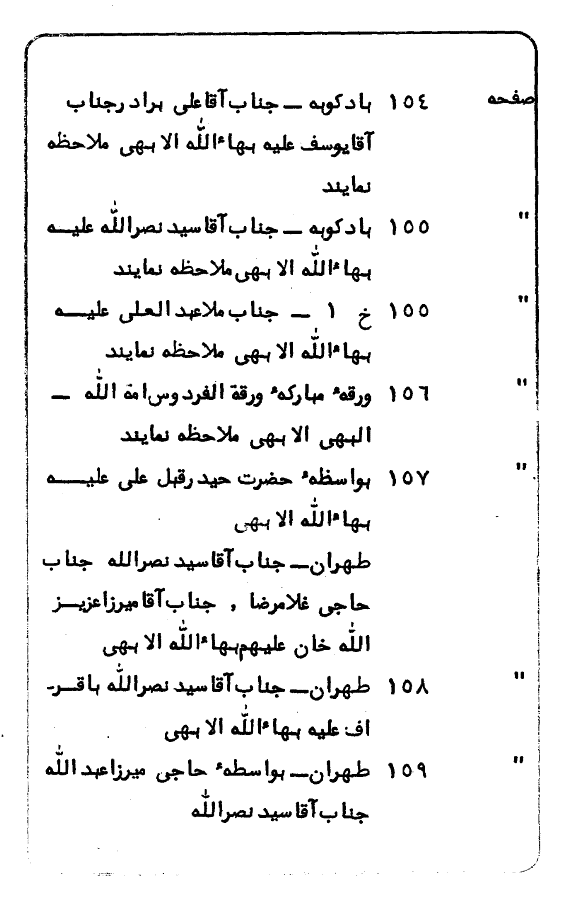 صفحه ١٥٤ بادکوبه ــ جناب آقاعلی برادرجناب
آقایوسف علیه بهاءاللّه الابهی ملاحظه
نمایند
" ١٥٥ بادکوبه ــ جناب آقاسید نصراللّه علیــه
بهاءاللّه الابهی ملاحظه نمایند
" ١٥٥ خ ١ ــ جناب ملاعبدالعلی علیــه
بهاءاللّه الابهی ملاحظه نمایند
" ١٥٦ ورقهٴ مبارکهٴ ورقة الفردوس امة اللّه ــ
البهی الابهی ملاحظه نمایند
" ١٥٧ بواسظهٴ حضرت حیدرقبل علی علیــه
بهاءاللّه الابهی
طهران ــ جناب آقاسید نصرالله جناب
حاجی غلامرضا , جناب آقامیرزاعزیــز
اللّه خان علیهم بهاءاللّه الابهی
" ١٥٨ طهران ــ جناب آقاسید نصراللّه باقــر-
اف علیه بهاءاللّه الابهی
" ١٥٩ طهران ــ بواسطهٴ حاجی میرزاعبداللّه
جناب آقاسید نصراللّه